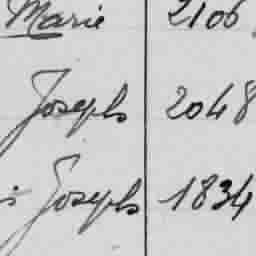 Marie 2106
Joseph 2048
Joseph 1834